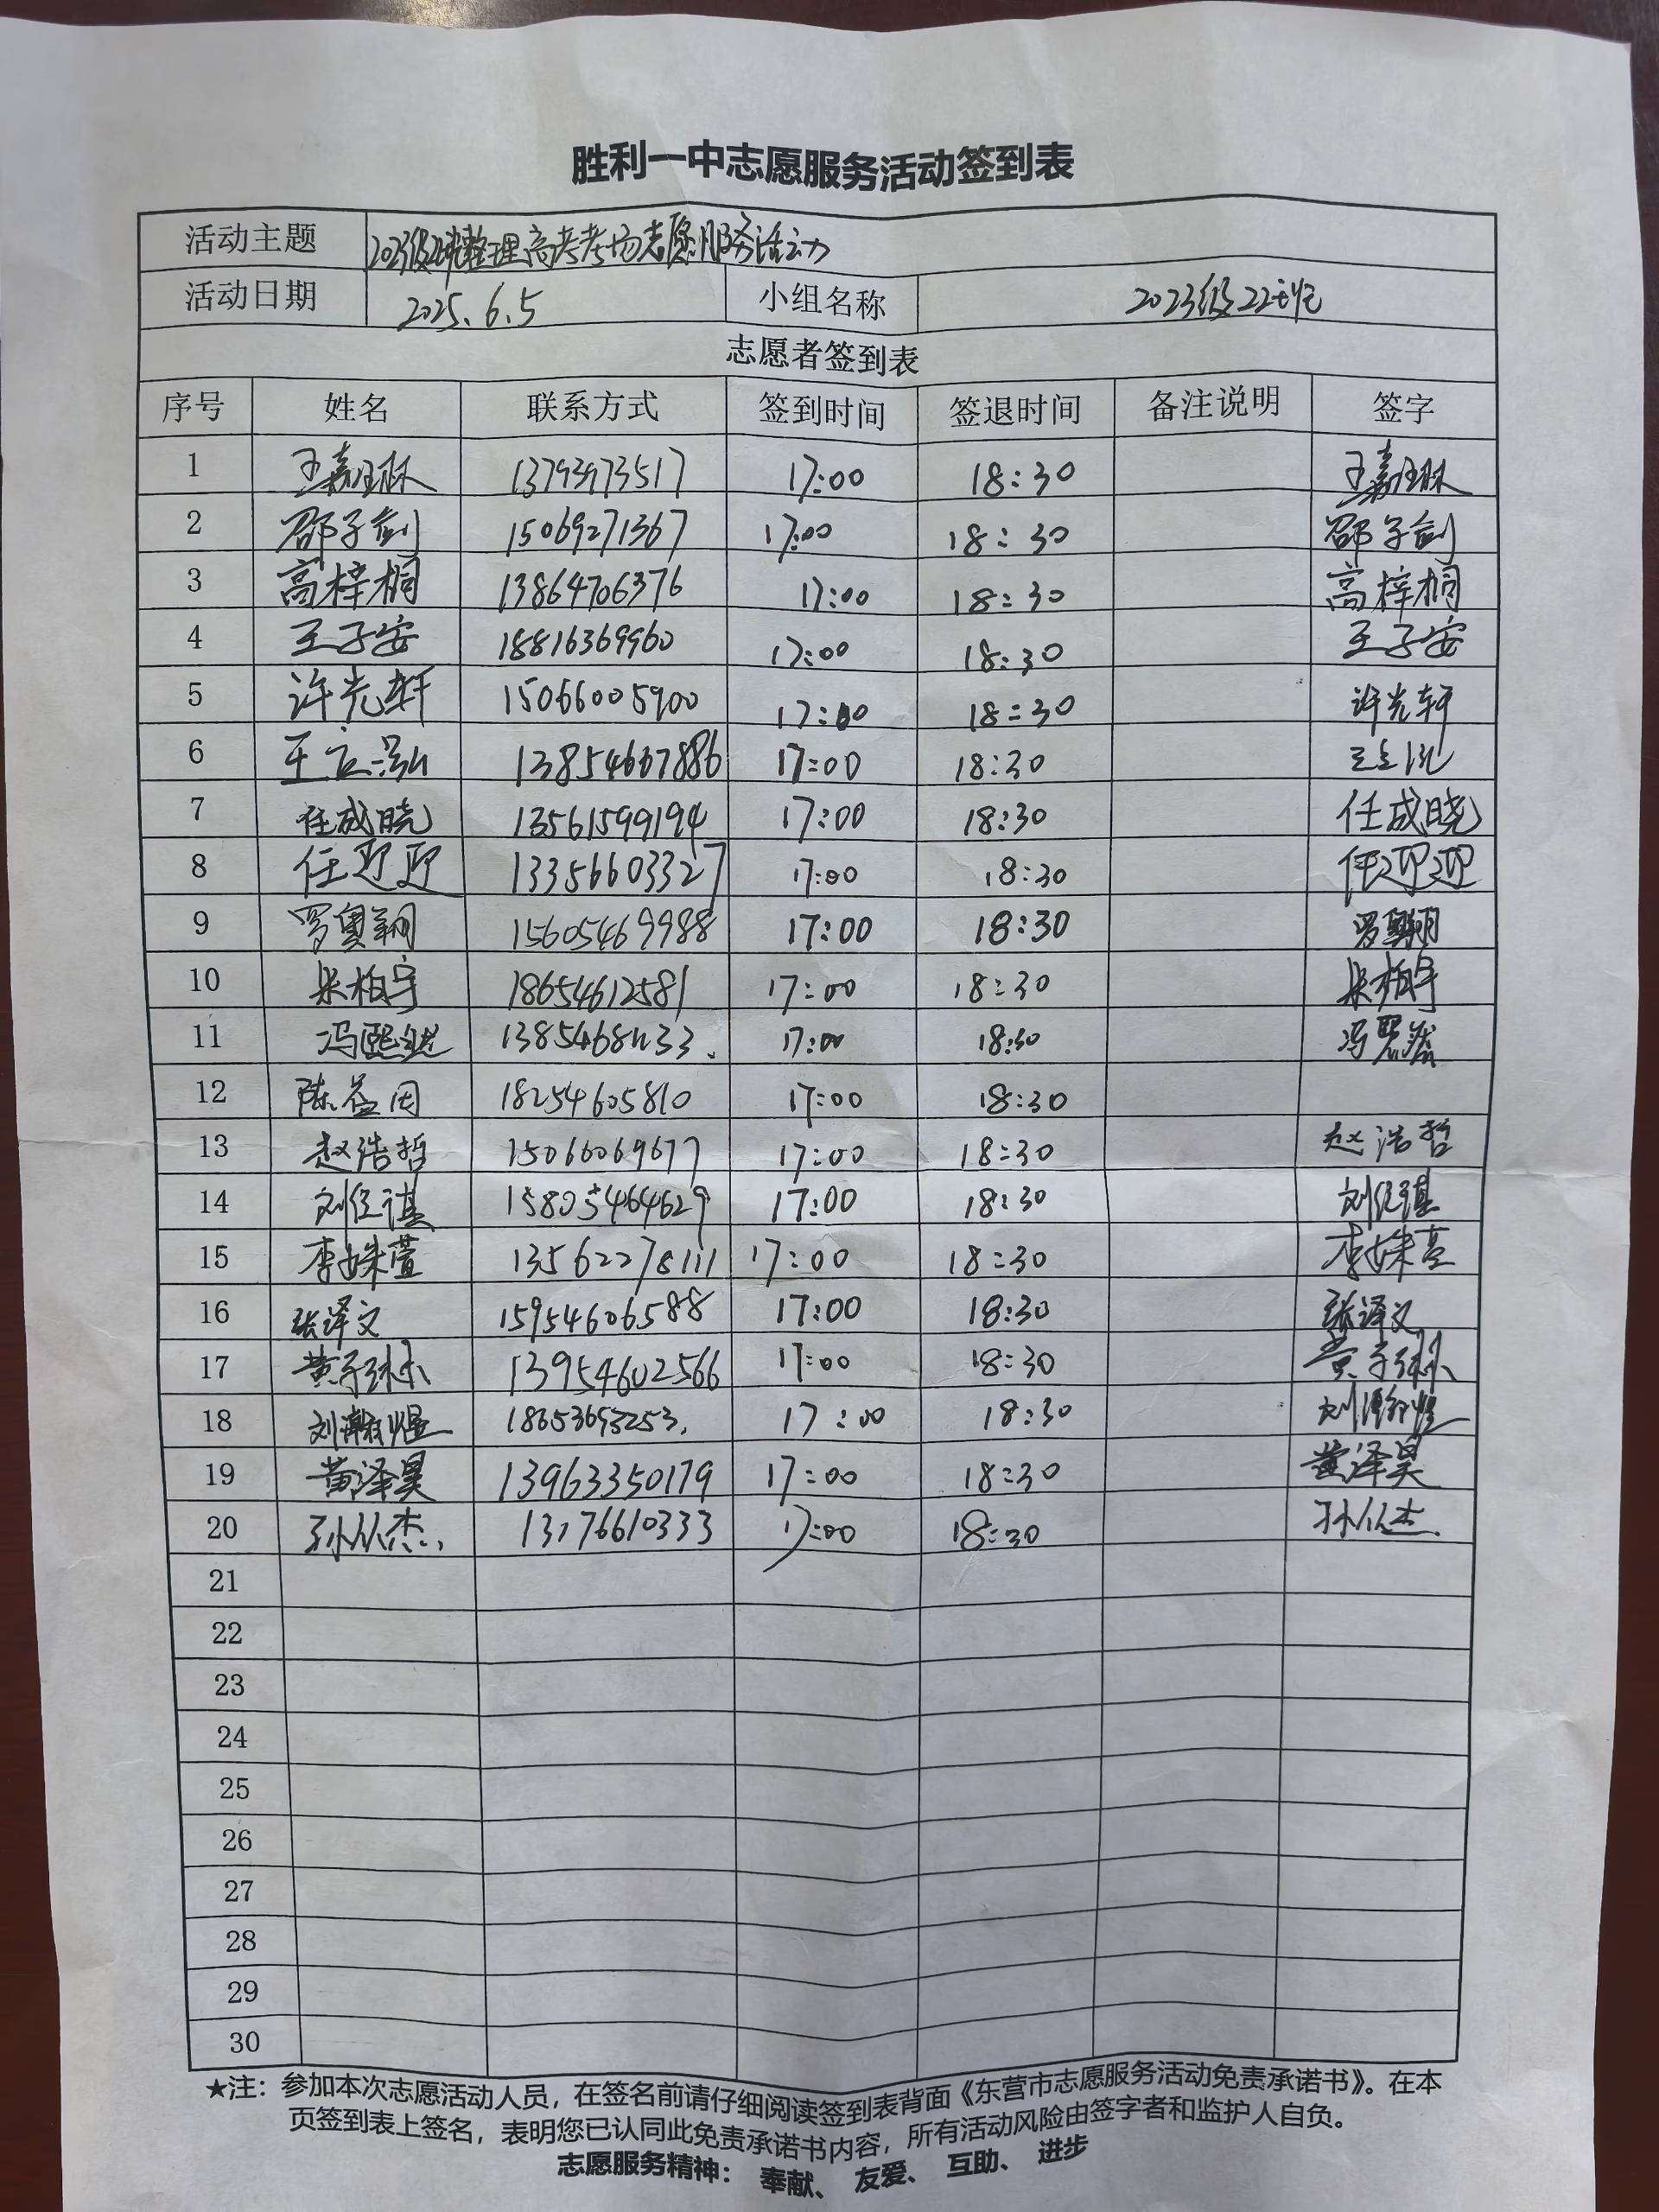 胜利一中志愿服务活动签到表
活动主题 2023级22班整理高考考场志愿服务活动
活动日期 2025.6.5 小组名称 2023级22班
志愿者签到表
序号 姓名 联系方式 签到时间 签退时间 备注说明 签字
1 王嘉琳 13793973517 17:00 18:30 王嘉琳
2 邵子剑 15069271367 17:00 18:30 邵子剑
3 高梓桐 13864706376 17:00 18:30 高梓桐
4 王子安 18816369960 17:00 18:30 王子安
5 许光轩 15066005900 17:00 18:30 许光轩
6 王立泓 13854667886 17:00 18:30 王立泓
7 任成晓 13561599194 17:00 18:30 任成晓
8 任迎迎 13356603327 17:00 18:30 任迎迎
9 罗奥翔 15605469988 17:00 18:30 罗奥翔
10 米柏宇 18654612581 17:00 18:30 米柏宇
11 冯熙然 17:00 18:30 冯熙然
12 陈益因 18254605810 17:00 18:30
13 赵浩哲 15066069677 17:00 18:30 赵浩哲
14 刘谌 15805464629 17:00 18:30 刘谌
15 李姝萱 13562278111 17:00 18:30 李姝萱
16 张译文 15954606588 17:00 18:30 张译文
17 黄子琳 13954602566 17:00 18:30 黄子琳
18 刘瀚煜 18653693253. 17:00 18:30 刘瀚煜
19 黄泽昊 13963350179 17:00 18:30 黄泽昊
20 孙从杰 13176610333 17:00 18:30 孙从杰
21
22
23
24
25
26
27
28
29
30
★注：参加本次志愿活动人员，在签名前请仔细阅读签到表背面《东营市志愿服务活动免责承诺书》。在本
页签到表上签名，表明您已认同此免责承诺书内容，所有活动风险由签字者和监护人自负。
志愿服务精神：奉献、友爱、互助、进步